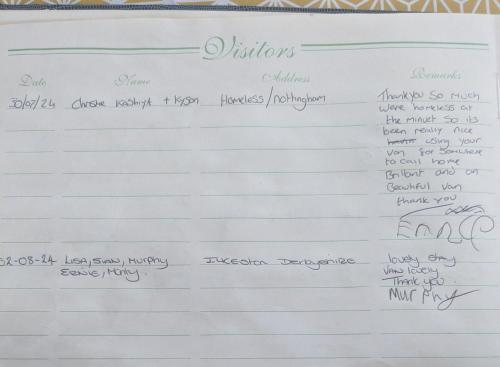 Visitors
Date Name Address Remarks
30/07/24 Christie Kashiya + Kyson Homeless/nottingham Thankyou so Much
were homeless at
the minuet so its
been really nice
using your
van for somwhere
to call home
Brillant and an
Beautiful van
thank you
02-08-24 LISA, SIAN, Murphy ILKESTON Derbyshire lovely stay
ERNIE, Monty. VAN lovely
Thank you.
Murphy